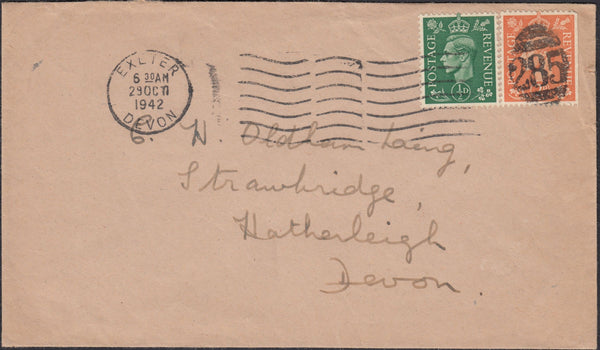 EXETER
6 30 AM
29 OCT
1942
DEVON
POSTAGE REVENUE
½D
POSTAGE REVENUE
285
W. Oldham Laing,
Strawbridge,
Hatherleigh
Devon.